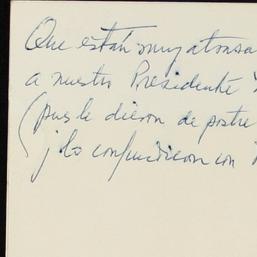 Que están muy
a nuestro Presidente
(pues le dieron de postre
y lo confundieron con